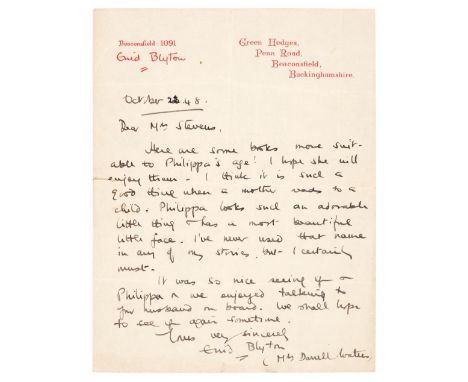 Beaconsfield 1091
Enid Blyton
Green Hedges,
Penn Road,
Beaconsfield,
Buckinghamshire.
October 48.
Dear Mrs Stevens,
Here are some books more suit-
able to Philippa's age! I hope she will
enjoy them - I think it is such a
good thing when a mother reads to a
child. Philippa looks such an adorable
little thing & has a most beautiful
little face. I've never used that name
in any of my stories, but I certainly
must.
It was so nice seeing you &
Philippa & we enjoyed talking to
your husband on board. We shall hope
to see you again sometime.
Yours very sincerely
Enid Blyton
(Mrs Darrell Waters